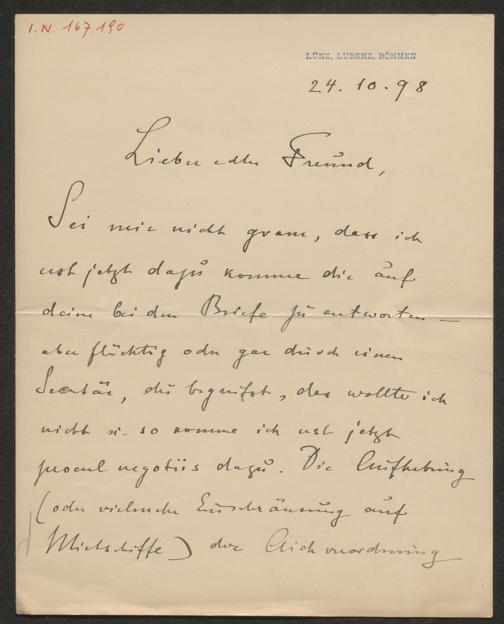 I.N. 167.190
LÜNZ, LUBENZ, BÖHMEN
24.10.98
Lieber edler Freund,
Sei mir nicht gram, dass ich
erst jetzt dazu komme dir auf
deine beiden Briefe zu antworten —
aber flüchtig oder gar durch einen
Secretär, du begreifst, das wollte ich
nicht u. so komme ich erst jetzt
procul negotiis dazu. Die Aufhebung
(oder vielmehr Einschränkung auf
Mietschiffe) der Aichverordnung